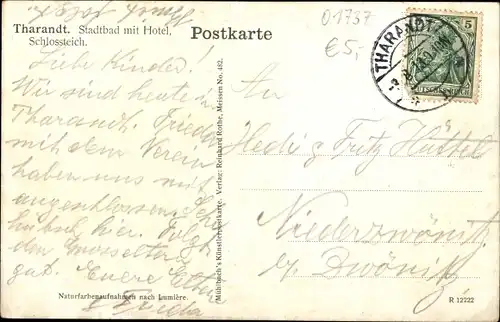 Tharandt. Stadtbad mit Hotel,
Schlossteich.
Postkarte
01737
€5,-
THARANDT
5
DEUTSCHES REICH
Liebe Kinder!
Wir sind heute in
Tharandt.
mit dem Verein
haben uns mit
angeschlossen. Sehr
hübsch hier. Folgt
den Grosseltern
gut. Euere Eltern
& Frieda
An
Hedi & Fritz Hüttel
Niederzwönitz
b/ Zwönitz
Mühlbach's Künstlerpostkarte. Verlag: Reinhard Rothe, Meissen No. 482.
Naturfarbenaufnahmen nach Lumière.
R 12222